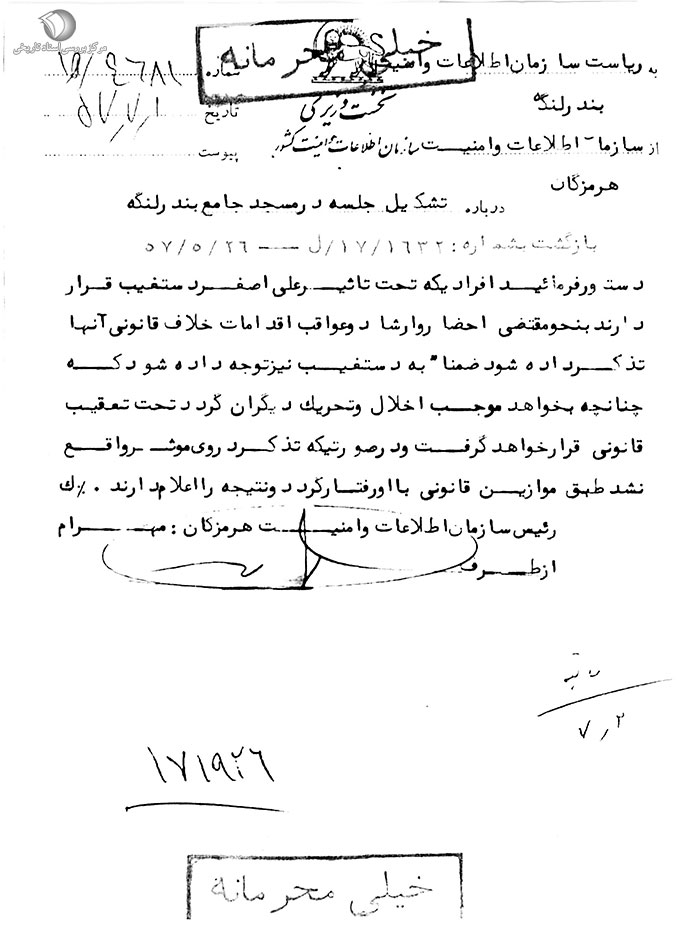 مرکز بررسی اسناد تاریخی
خیلی محرمانه
به ریاست سازمان اطلاعات وامنیت
شماره
بندرلنگه
نخست وزیری
تاریخ ۵۷٫۷٫۱
از سازمان اطلاعات وامنیت سازمان اطلاعات و امنیت کشور پیوست
هرمزگان
درباره تشکیل جلسه درمسجد جامع بندرلنگه
بازگشت بشماره: ۱۷/۱۶۳۲/ل --- ۵۷/۵/۲۶
دستورفرمائید افرادیکه تحت تاثیرعلی اصغردستغیب قرار
دارند بنحومقتضی احضاروارشادوعواقب اقدامات خلاف قانونی آنها
تذکرداده شود ضمنا" به دستغیب نیزتوجه داده شودکه
چنانچه بخواهد موجب اخلال وتحریك دیگران گردد تحت تعقیب
قانونی قرارخواهدگرفت ودرصورتیکه تذکردروی موثرواقع
نشد طبق موازین قانونی بااورفتارکردد ونتیجه رااعلام دارند ۰٪ك
رئیس سازمان اطلاعات وامنیت هرمزگان : مهرام
ازطرف
۷٫۲
۱۷۱۹۲۶
خیلی محرمانه